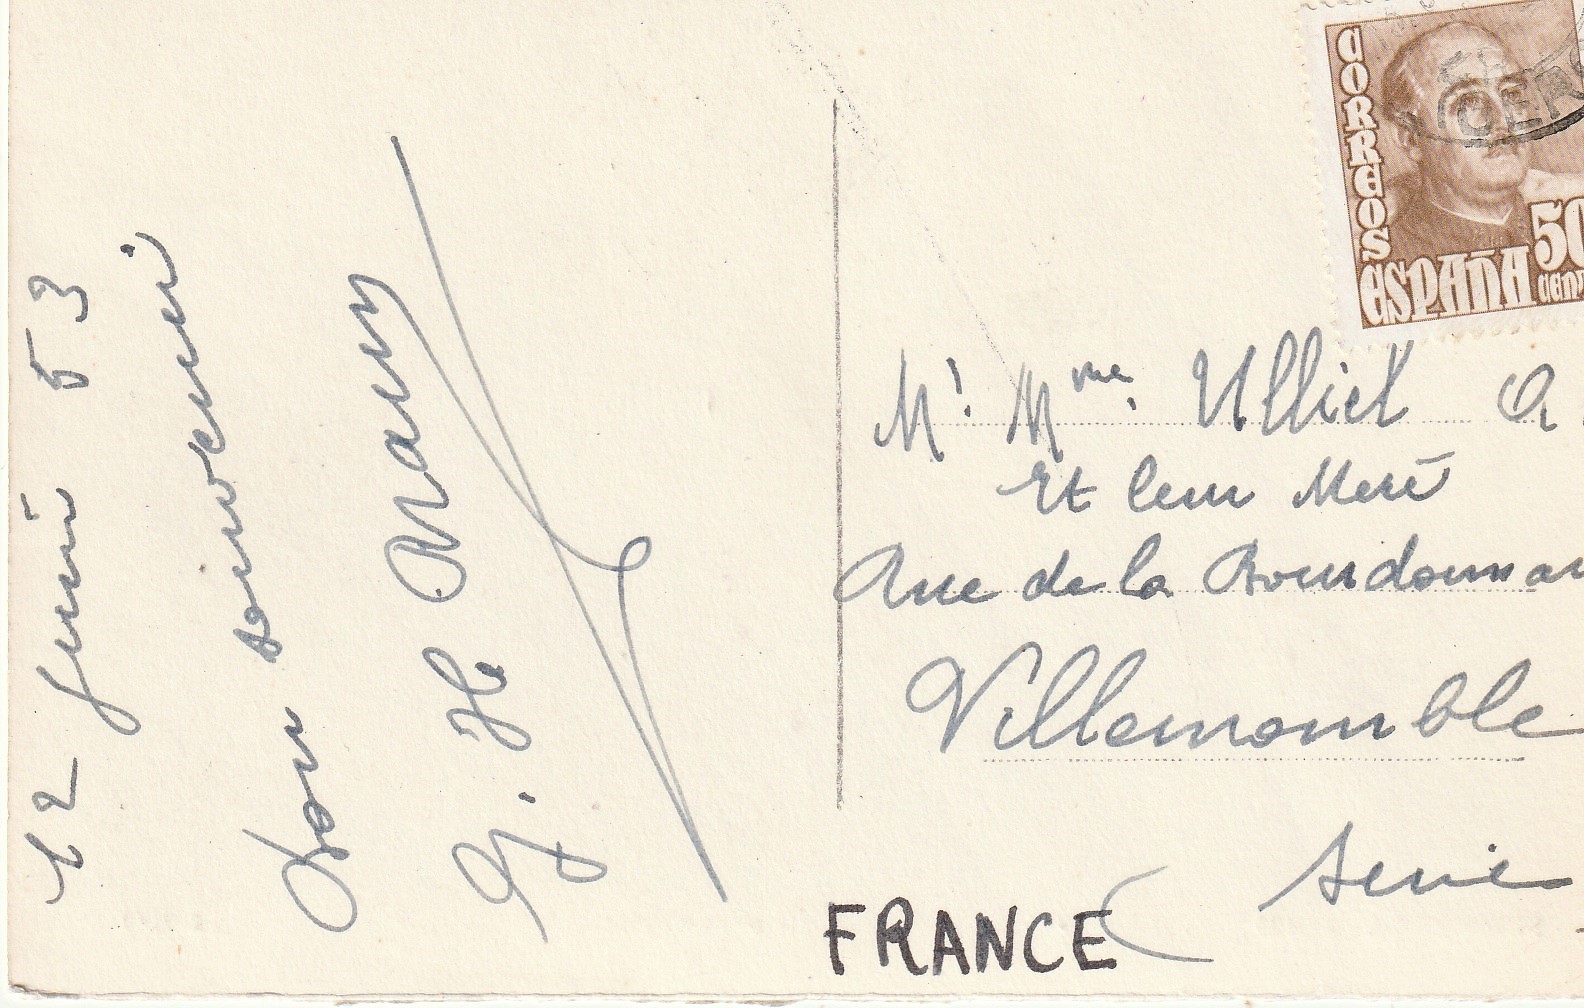 12 Juin 53
Bon souvenir
CORREOS
ESPAÑA
50
Mr. Mme. Ulliel
Et leur Mere
Rue de la
Villemomble
Seine
FRANCE